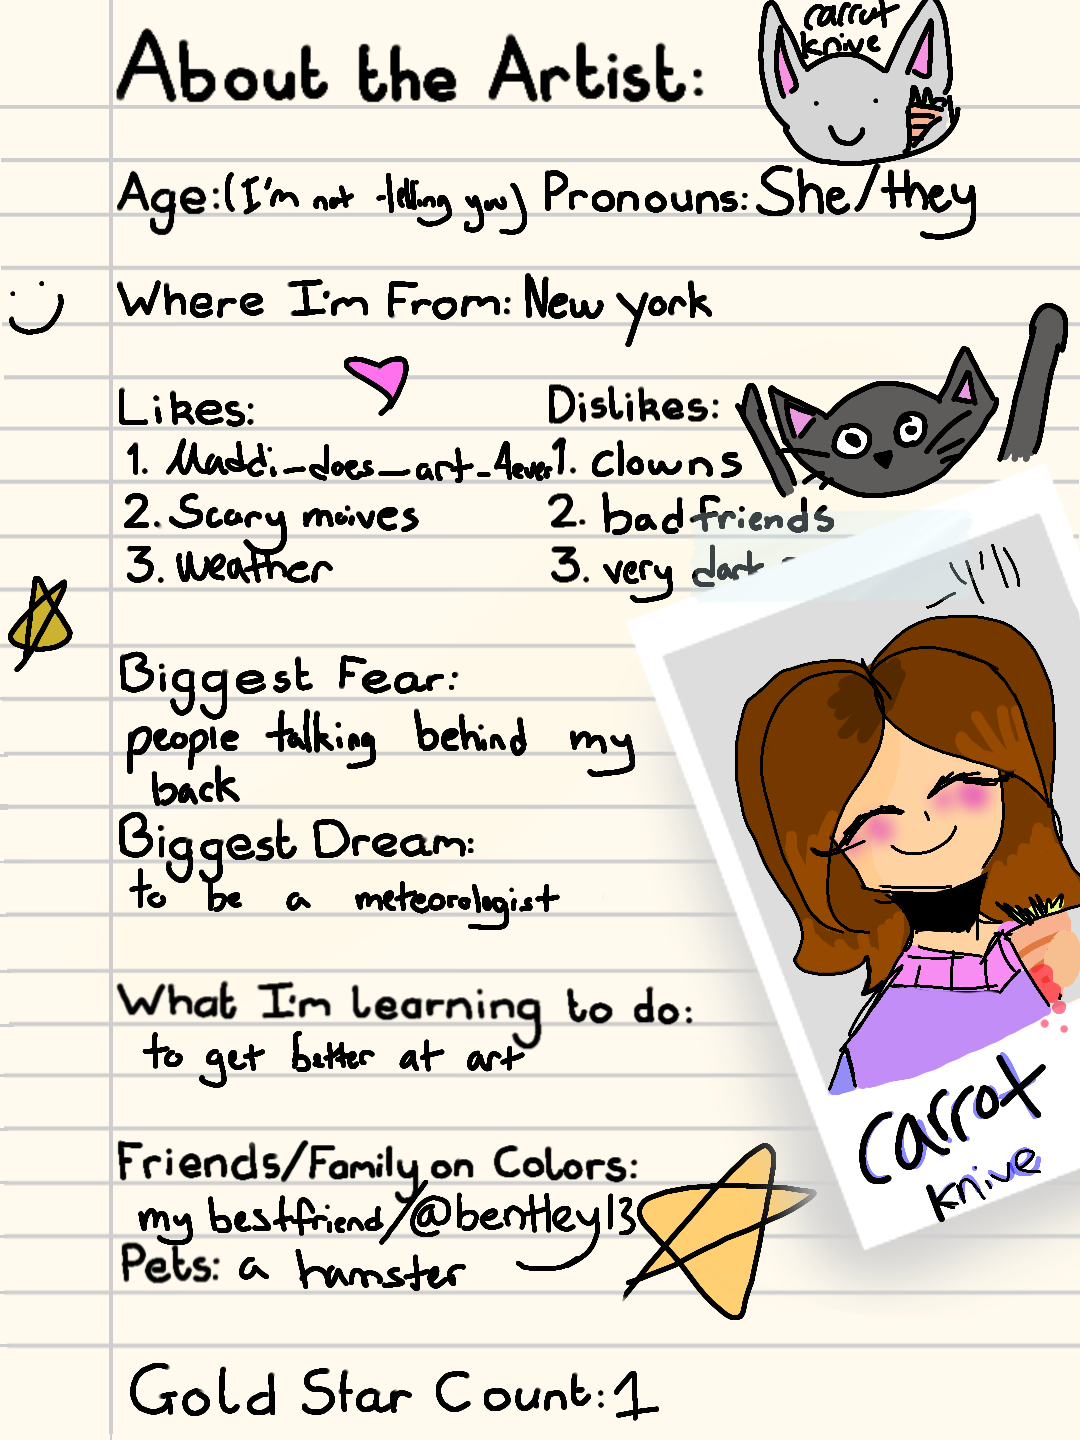 carrot
knive
About the Artist:
Age:(I'm not telling you) Pronouns: She/they
Where I'm From: New york
Likes:
1. Maddi_does_art_4ever
2. Scary moives
3. Weather
Dislikes:
1. clowns
2. bad friends
3. very dark
Biggest Fear:
people talking behind my
back
Biggest Dream:
to be a meteorologist
What I'm learning to do:
to get better at art
Friends/Family on Colors:
my bestfriend/@bentley13
Pets: a hamster
Gold Star Count: 1
carrot
knive